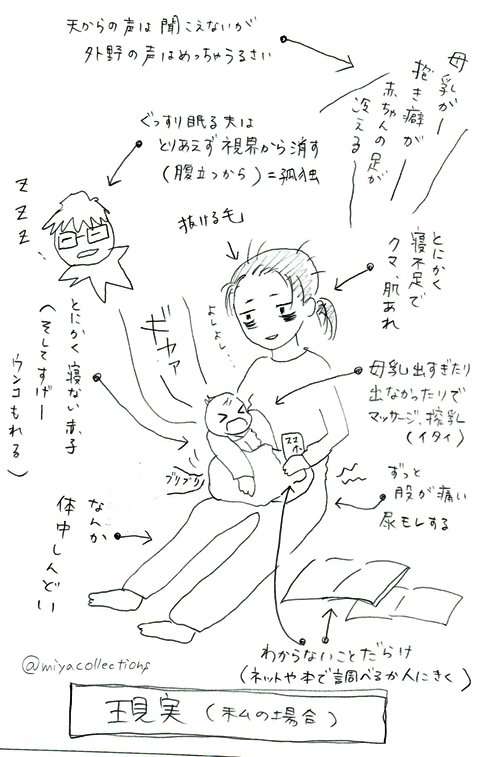 天からの声は聞こえないが
外野の声はめっちゃうるさい
母乳がー
抱き癖が
赤ちゃんの足が
冷えるー
ぐっすり眠る夫は
とりあえず視界から消す
(腹立つから)=孤独
ZZZ
抜ける毛
とにかく
寝不足で
クマ、肌あれ
よしよし…
ギャァァ
とにかく寝ない赤子
(そしてすげー
ウンコもれる)
母乳出すぎたり
出なかったりで
マッサージ、搾乳
(イタイ)
スマホ
ブリブリ
ずっと
股が痛い
尿モレする
なんか
体中しんどい
わからないことだらけ
(ネットや本で調べるか人にきく)
@miyacollections
現実(私の場合)